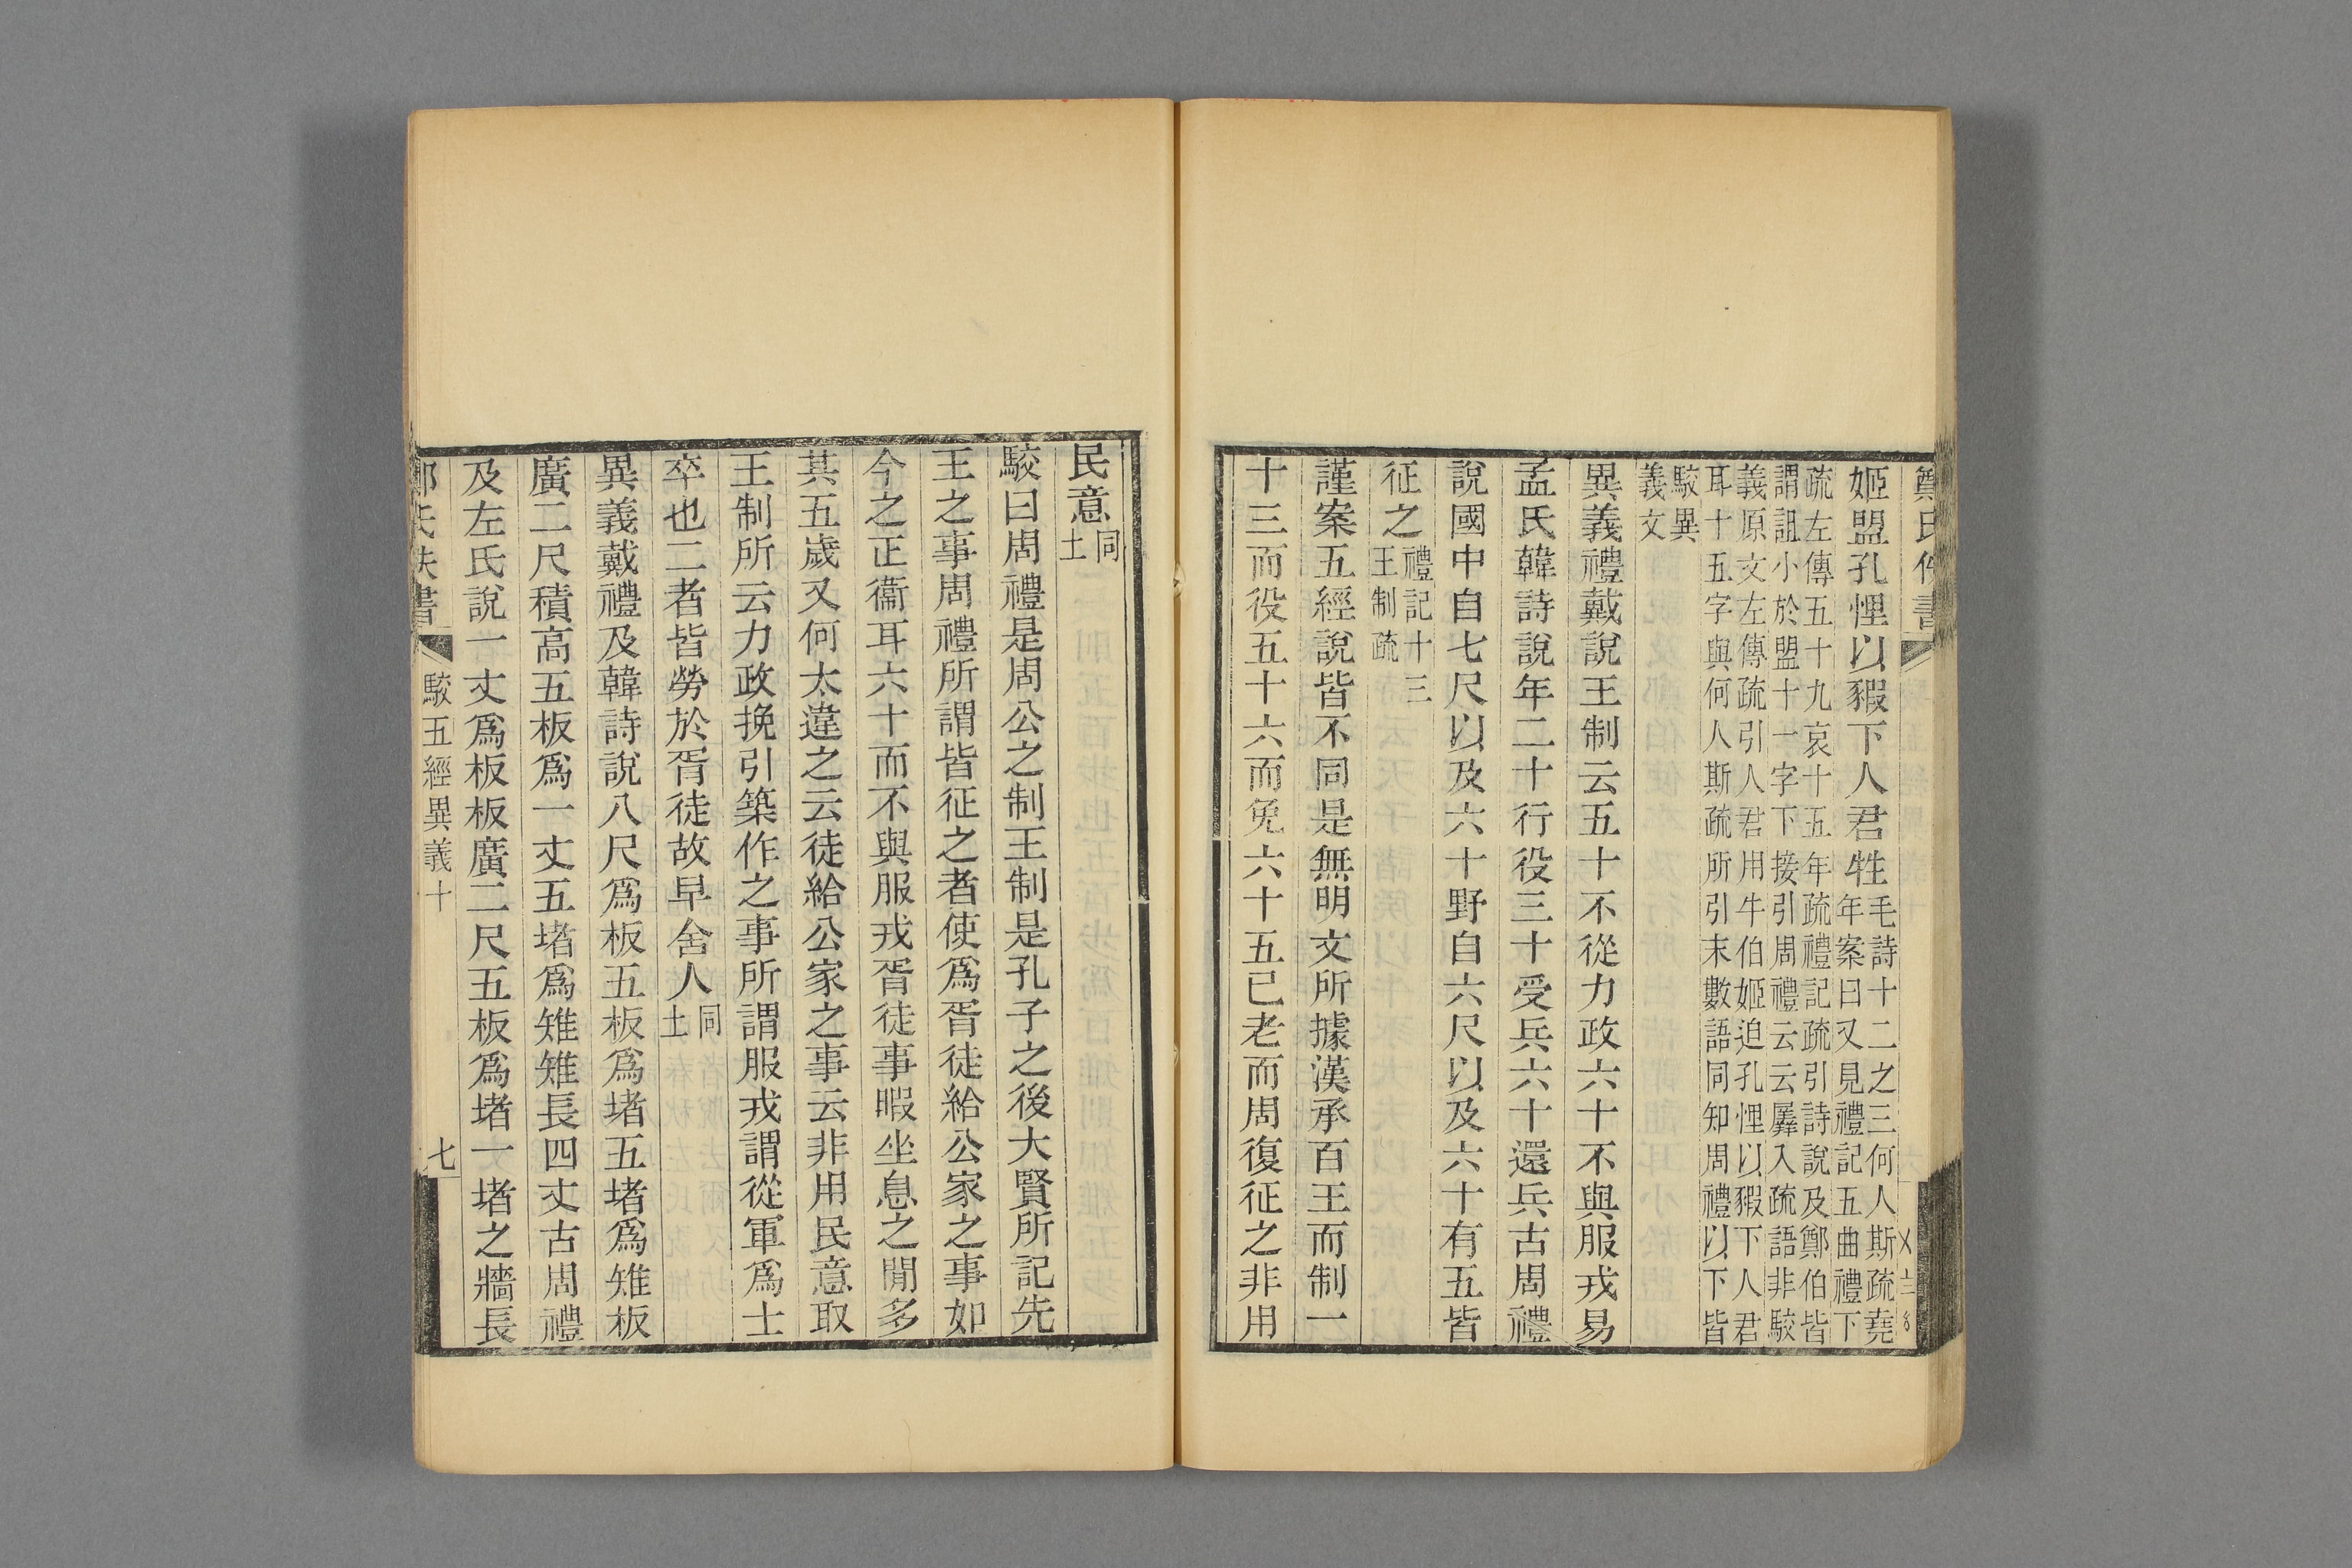 鄭氏佚書
姬盟孔悝以豭下人君牲毛詩十二之三何人斯疏堯年案曰又見禮記五曲禮下
疏左傳五十九哀十五年疏禮記疏引詩說及鄭伯皆謂詛小於盟十一字下接引周禮云云羼入疏語非駮
義原文左傳疏引人君用牛伯姬迫孔悝以豭下人君耳十五字與何人斯疏所引末數語同知周禮以下皆
駮異義文
異義禮戴說王制云五十不從力政六十不與服戎易
孟氏韓詩說年二十行役三十受兵六十還兵古周禮
說國中自七尺以及六十野自六尺以及六十有五皆
征之禮記十三王制疏
謹案五經說皆不同是無明文所據漢承百王而制一
十三而役五十六而免六十五已老而周復征之非用
民意同上
駮曰周禮是周公之制王制是孔子之後大賢所記先
王之事周禮所謂皆征之者使爲胥徒給公家之事如
今之正衞耳六十而不與服戎胥徒事暇坐息之閒多
其五歲又何太違之云徒給公家之事云非用民意取
王制所云力政挽引築作之事所謂服戎謂從軍爲士
卒也二者皆勞於胥徒故早舍人同上
異義戴禮及韓詩說八尺爲板五板爲堵五堵爲雉板
廣二尺積高五板爲一丈五堵爲雉雉長四丈古周禮
及左氏說一丈爲板板廣二尺五板爲堵一堵之牆長
鄭氏佚書
駮五經異義十
七